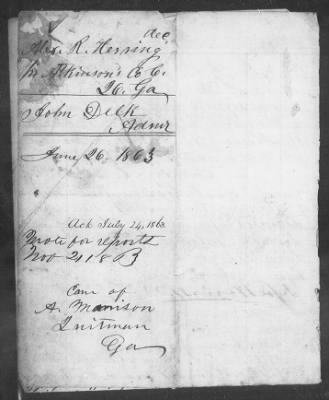 Acc
Alex. R. Herring
Atkinson's Co E.
26. Ga
John Delk
Admr
June 26. 1863
Ack July 24, 1863
Wrote for reports
Nov 21 1863
Care of
A. Manison
Quitman
Ga